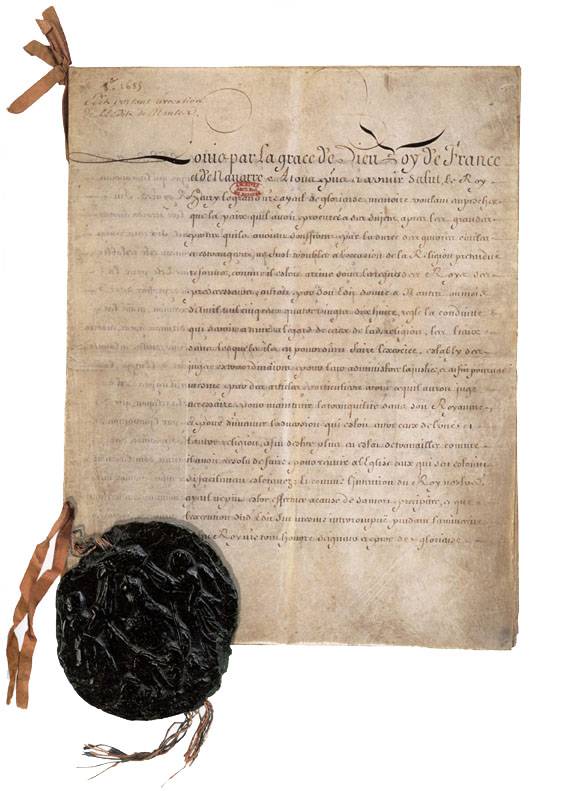 8bre 1685
Edit portant revocation
de l'Edit de Nantes.
Louis par la grace de Dieu Roy de France
et de Navarre a tous presens et a venir salut, le Roy
Henry le grand nostre ayeul de glorieuse memoire voulant empescher
que la paix qu'il avoit procurée a ses sujets apres les grandes
pertes qu'ils avoient souffertes par la durée des guerres civiles
et estrangeres, ne fust troublée a l'occasion de la Religion pretendüe
reformée, comme il estoit arrivé sous les regnes des Roys ses
predecesseurs, auroit par son Edit donné a Nantes au mois
d'avril mil cinq cens quatre vingts dix huict, reglé la conduitte
qui devoit a tenir a l'egard de ceux de lad. religion, les lieux
dans lesquels ils en pourroient faire l'exercice, estably des
juges extraordinaires pour leur administrer la justice, et enfin pourveu
mesme par des articles particuliers a tout ce qu'il auroit jugé
necessaire pour maintenir la tranquilité dans son Royaume,
et pour diminuer l'aversion qui estoit entre ceux de l'une et
l'autre religion, afin d'estre plus en estat de travailler comme
il avoit resolu de faire pour reünir a l'Eglise ceux qui s'en estoient
si facilement esloignez; et comme l'intention du Roy nostred.
ayeul ne put estre effectuée a cause de sa mort precipitée, et que
l'execution dud. Edit fut mesme interrompüe pendant la minorité
du feu Roy nostre tres honoré seigneur et pere de glorieuse